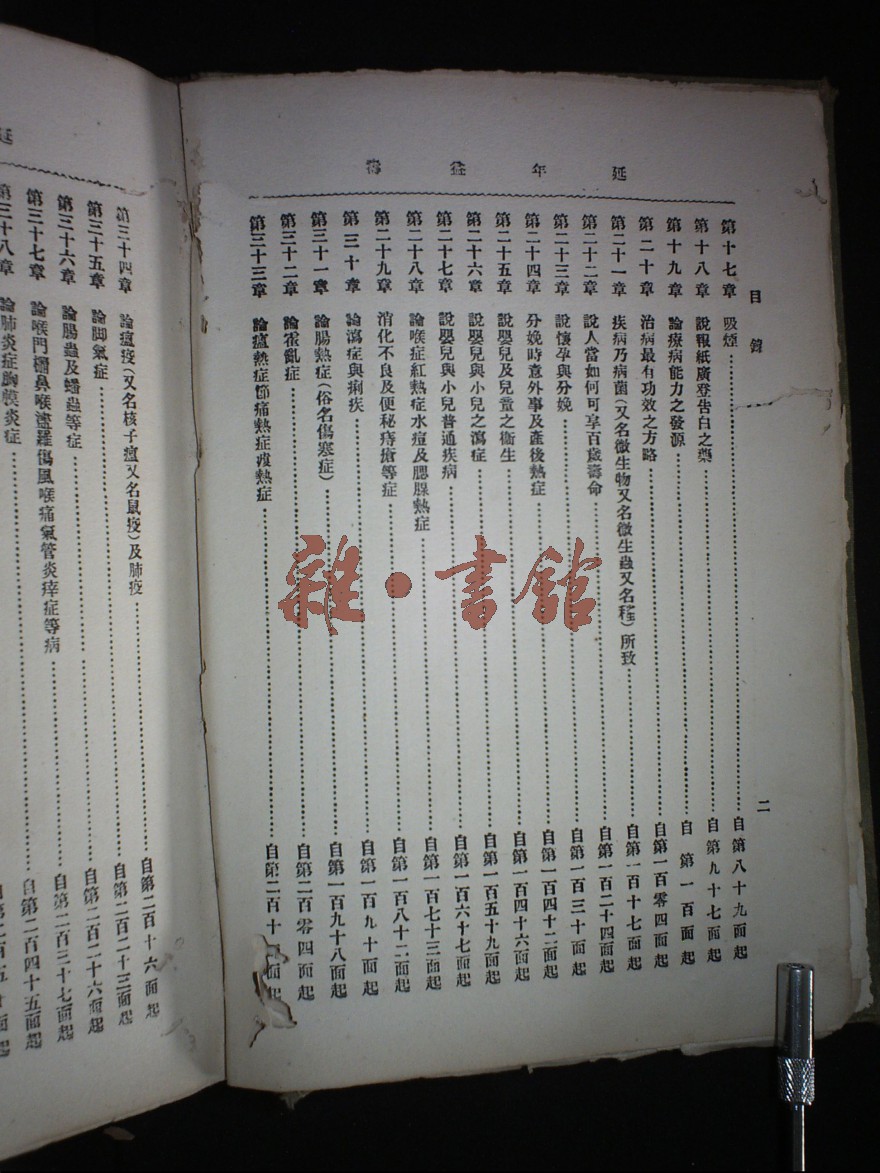 延年益壽
目錄
二
第十七章 吸煙……自第八十九面起
第十八章 說報紙廣登告白之藥……自第九十七面起
第十九章 論療病能力之發源……自第一百面起
第二十章 治病最有功效之方略……自第一百零四面起
第二十一章 疾病乃病菌(又名微生物又名微生蟲又名)所致……自第一百十七面起
第二十二章 說人當如何可享百歲壽命……自第一百二十四面起
第二十三章 說懷孕與分娩……自第一百三十面起
第二十四章 分娩時意外事及產後熱症……自第一百四十二面起
第二十五章 說嬰兒及兒童之衞生……自第一百四十六面起
第二十六章 說嬰兒與小兒之瀉症……自第一百五十九面起
第二十七章 說嬰兒與小兒普通疾病……自第一百六十七面起
第二十八章 論喉症紅熱症水痘及腮腺熱症……自第一百七十三面起
第二十九章 消化不良及便秘痔瘡等症……自第一百八十二面起
第三十章 論瀉症與痢疾……自第一百九十面起
第三十一章 論腸熱症(俗名傷寒症)……自第一百九十八面起
第三十二章 論霍亂症……自第二百零四面起
第三十三章 論瘧熱症節痛熱症熱症……自第二百十面起
延
第三十四章 論瘟疫(又名核子瘟又名鼠疫)及肺疫……自第二百十六面起
第三十五章 論脚氣症……自第二百二十三面起
第三十六章 論腸蟲及蟠蟲等症……自第二百二十六面起
第三十七章 論喉門鼻喉傷風喉痛氣管炎痒症等病……自第二百三十七面起
第三十八章 論肺炎症胸膜炎症……自第二百四十五面起
雜·書館